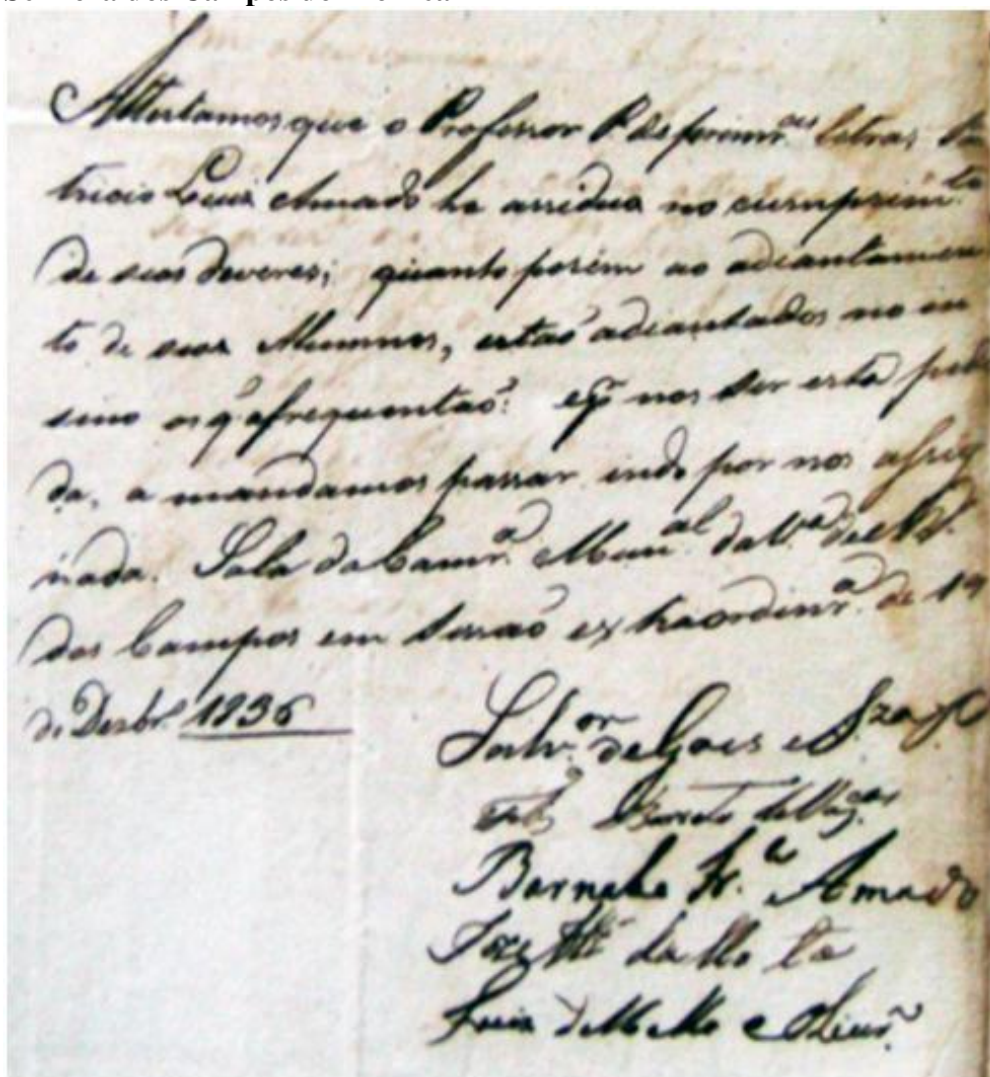 Attestamos que o Professor P. das primr.as letras, Pa
tricio Luis Amado he assiduo no cumprim.to
de seos deveres; quanto porem ao adeantamen
to de seos Alumnos, estaõ adeantados no en
sino os q̃ afrequentaõ: e p̃ nos ser esta pedi
da, a mandamos passar indo por nos assig
nada. Sala da Camr.a Mun.al da V.a de
dos Campos em sessaõ extraordinr.a de 19
de Dezbr.o 1836
Salv.or de Goes e Sza
Barreto de
Barnabe Fr.co Amado
Joze da Motta
Luis de Mello e Olivr.a